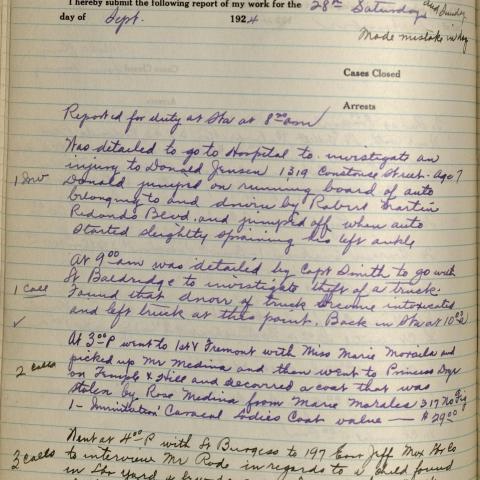 I hereby submit the following report of my work for the 28th Saturday and Sunday
day of Sept. 1924
Made mistake in day
Cases Closed
Arrests
Reported for duty at Sta at 8 00 am
Was detailed to go to Hospital to investigate an
injury to Donald Jensen 1319 Constance Street. Age 7
1 Inv Donald jumped on running board of auto
belonging to and driven by Robert Martin
Redondo Blvd. and jumped off when auto
started slightly spraining his left ankle
At 9 00 am was detailed by Capt Smith to go with
St Baldridge to investigate theft of a truck.
1 Call Found that driver of truck became intoxicated
and left truck at this point. Back in Sta at 10
At 3 00 P went to 1st & Fremont with Miss Marie
picked up Mr Medina and then went to Princess Dye
2 calls on Temple & Hill and a coat that was
stolen by Rose Medina from Marie Morales 317 No Fig
1 - Imitation Caracal Ladies Coat value — $29 00
Went at 4 00 P with St Burgess to 197 East Jeff
3 calls to interview Mr Rode in regards to a child found
in yard